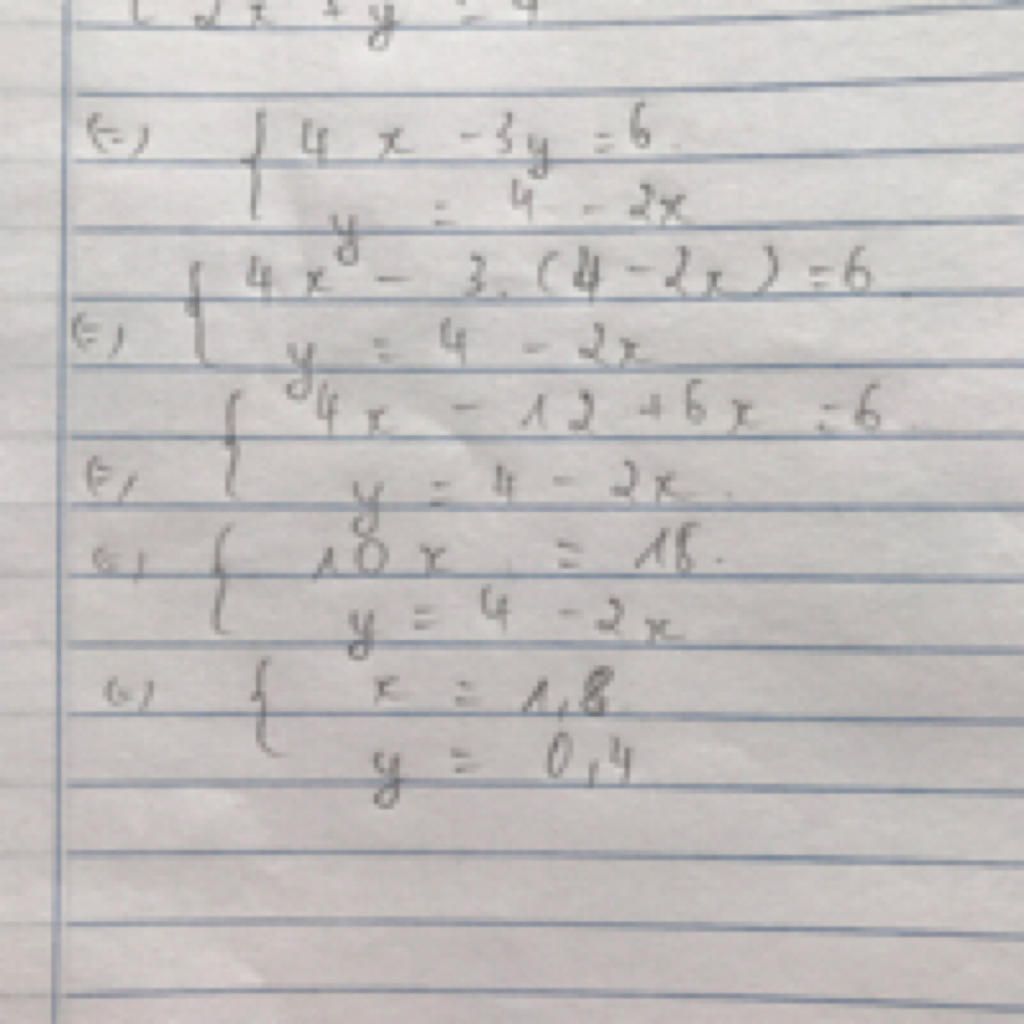 { 2x + y = 4
(=) { 4x - 3y = 6
y = 4 - 2x
{ 4x - 3.(4 - 2x) = 6
(=) y = 4 - 2x
{ 4x - 12 + 6x = 6
(=) y = 4 - 2x
(=) { 10x = 18
y = 4 - 2x
(=) { x = 1,8
y = 0,4